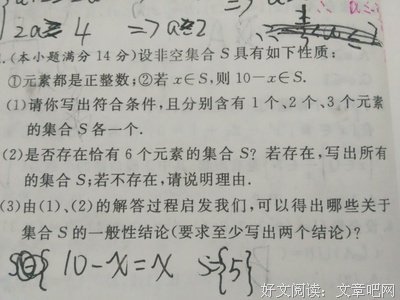 2a≥4 ⇒ a≥2
.(本小题满分 14 分)设非空集合 S 具有如下性质:
①元素都是正整数;②若 x∈S,则 10-x∈S.
(1)请你写出符合条件,且分别含有 1 个、2 个、3 个元素
的集合 S 各一个.
(2)是否存在恰有 6 个元素的集合 S? 若存在,写出所有
的集合 S;若不存在,请说明理由.
(3)由(1)、(2)的解答过程启发我们,可以得出哪些关于
集合 S 的一般性结论(要求至少写出两个结论)?
10-x=x S={5}
好文阅读:文章吧网